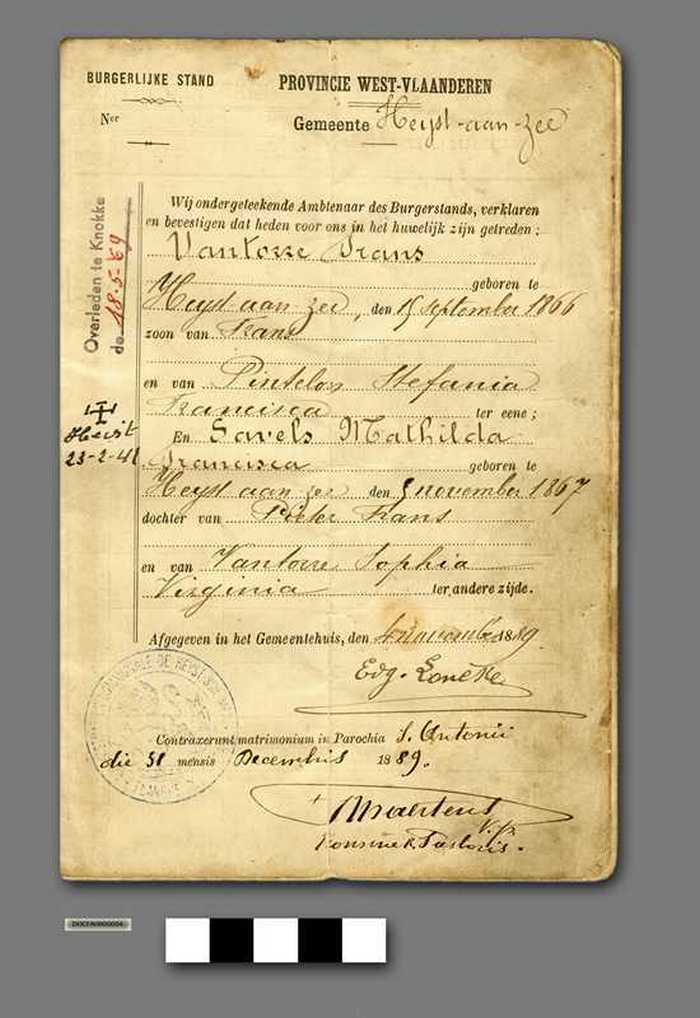 BURGERLIJKE STAND
Ner
PROVINCIE WEST-VLAANDEREN
Gemeente Heyst-aan-zee
Wij ondergeteekende Ambtenaar des Burgerstands, verklaren
en bevestigen dat heden voor ons in het huwelijk zijn getreden:
Vantorre Frans
geboren te
Heyst aan zee, den 15 september 1866
zoon van Frans
en van Pintelon Stefania
Francisca ter eene;
En Savels Mathilda
Francisca geboren te
Heyst aan zee den 5 november 1867
dochter van Pieter Frans
en van Vantorre Sophia
Virginia ter andere zijde.
Afgegeven in het Gemeentehuis, den 4 november 1889.
Contraxerunt matrimonium in Parochia S. Antonii
die 31 mensis Decembris 1889.
Maertens
Pastoris.
Overleden te Knokke
de 18-5-69
Heist
23-2-41